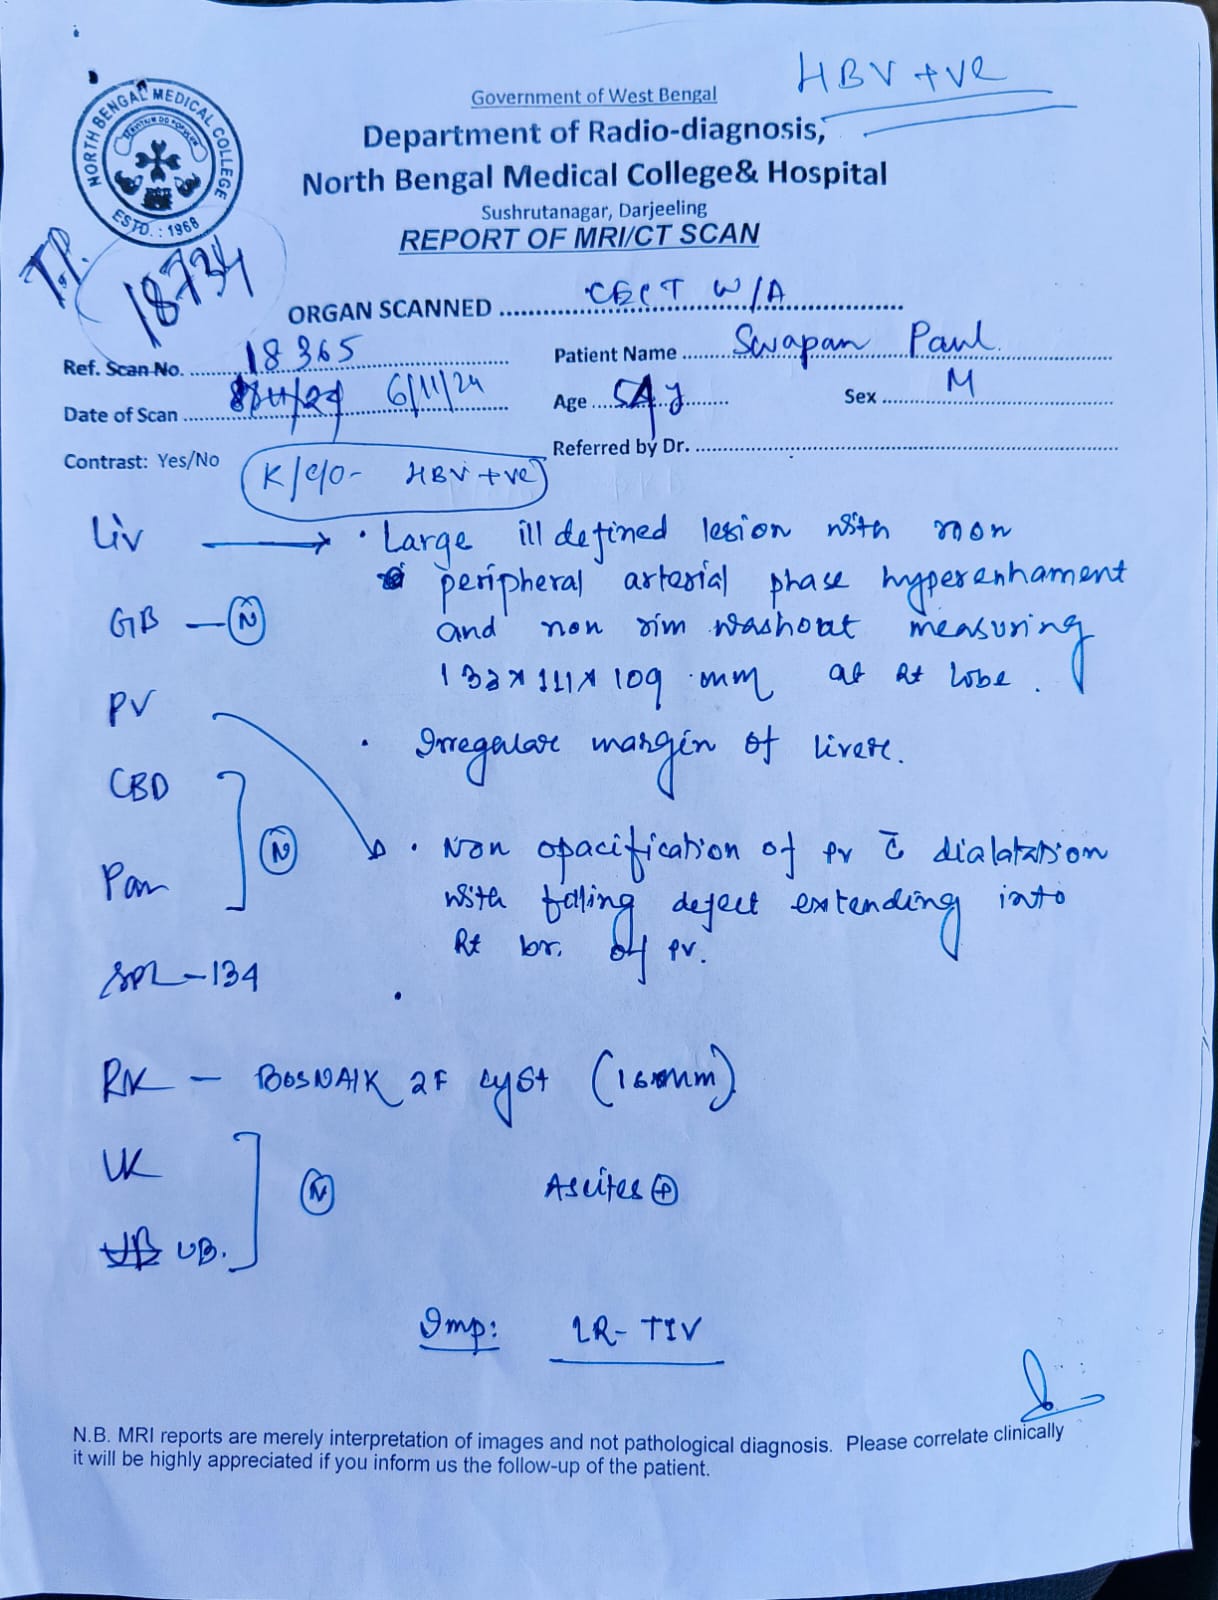 HBV +ve
Government of West Bengal
Department of Radio-diagnosis,
North Bengal Medical College& Hospital
Sushrutanagar, Darjeeling
REPORT OF MRI/CT SCAN
NORTH BENGAL MEDICAL COLLEGE
ESTD. : 1968
T.P. 18734
ORGAN SCANNED CECT W/A
Ref. Scan No. 18365 Patient Name Swapan Paul
Date of Scan 6/11/24 Age Sex M
Contrast: Yes/No Referred by Dr.
K/c/o- HBV +ve
Liv → • Large ill defined lesion with non
peripheral arterial phase hyperenhament
GB - N
and non rim washout measuring
132 x 111 x 109 mm at Rt lobe.
PV
• Irregular margin of liver.
CBD
N • Non opacification of PV c̄ dialatation
Pan
with filling defect extending into
Rt br. of PV.
SPL - 134
RK - BOSNAIK 2F cyst (mm)
LK
N Ascites +
UB.
Imp: LR- TIV
N.B. MRI reports are merely interpretation of images and not pathological diagnosis. Please correlate clinically
it will be highly appreciated if you inform us the follow-up of the patient.